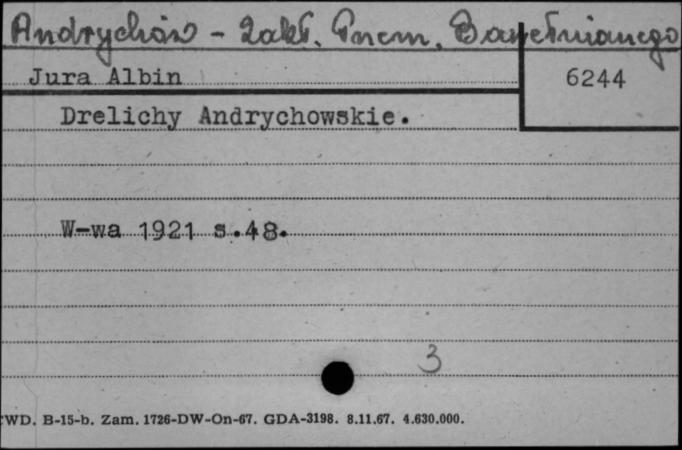 Andrychów - Zakł. Przem. Bawełnianego
Jura Albin
6244
Drelichy Andrychowskie.
W-wa 1921 s.48.
3
WD. B-15-b. Zam. 1726-DW-On-67. GDA-3198. 8.11.67. 4.630.000.